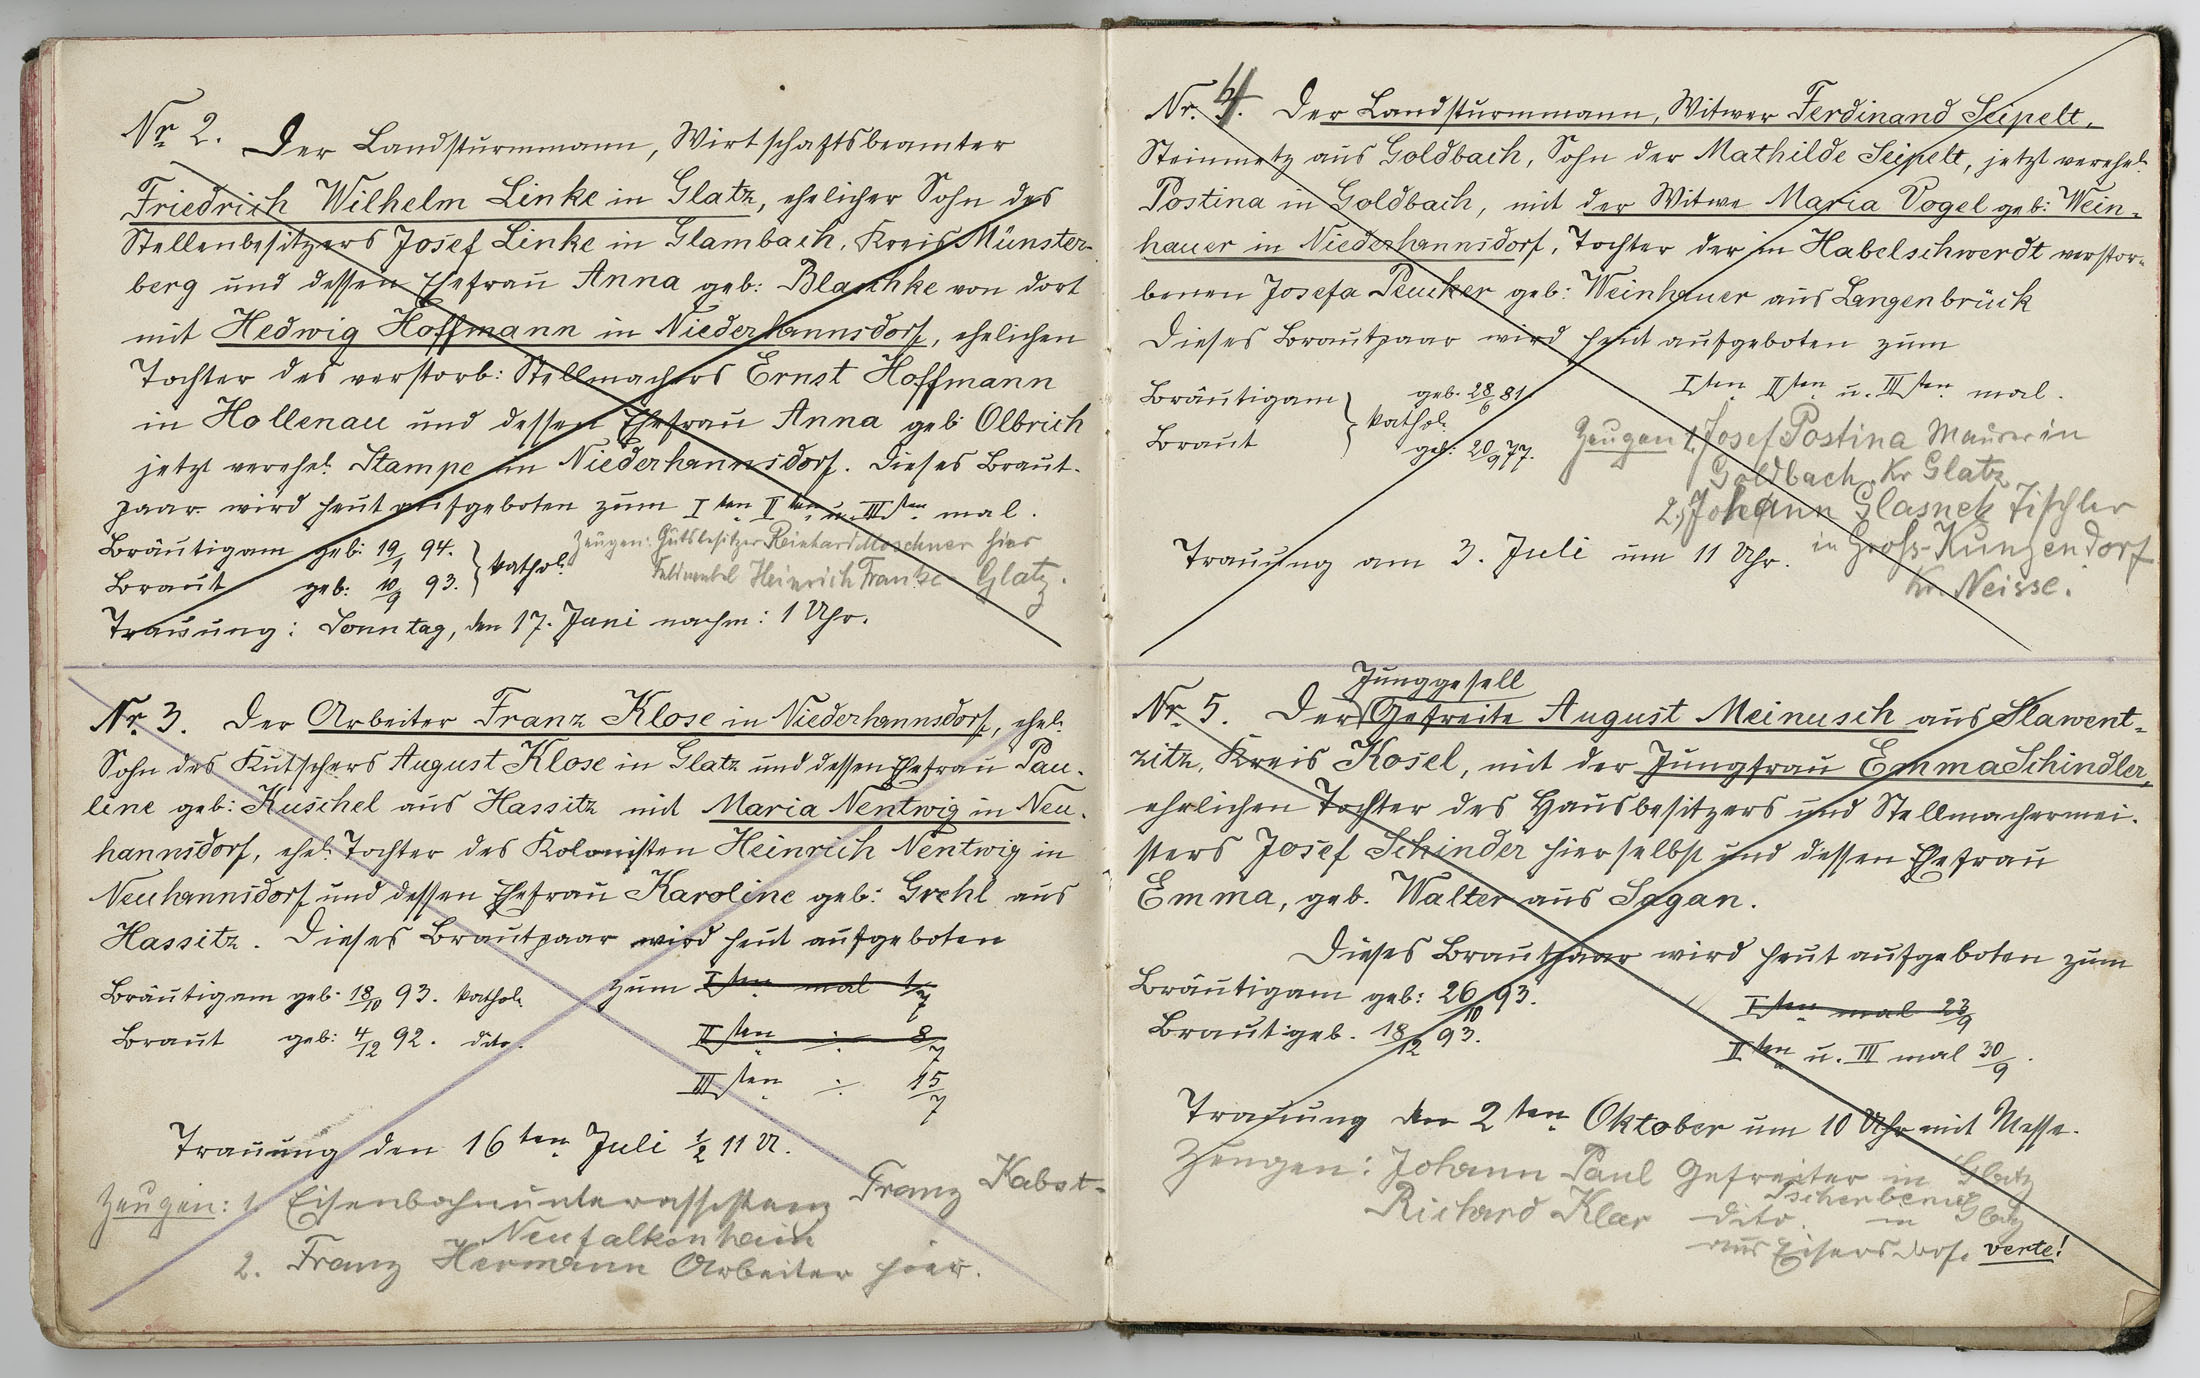 Nr 2. Der Landsturmmann, Wirtschaftsbeamter
Friedrich Wilhelm Linke in Glatz, ehelicher Sohn des
Stellenbesitzers Josef Linke in Glambach, Kreis Münster-
berg und dessen Ehefrau Anna geb: Blaschke von dort
mit Hedwig Hoffmann in Niederhannsdorf, ehelichen
Tochter des verstorb: Stellmachers Ernst Hoffmann
in Hollenau und dessen Ehefrau Anna geb Olbrich
jetzt verehel. Stampe in Niederhannsdorf. Dieses Braut-
paar wird heut aufgeboten zum Iten IIten u. IIIten mal.
Bräutigam geb: 19/1 94. } kathol.
Braut geb: 10/9 93.
Zeugen: Gutsbesitzer Reinhard Moschner hier
Feldwebel Heinrich Franke Glatz.
Trauung: Sonntag, den 17. Juni nachm: 1 Uhr.
Nr. 3. Der Arbeiter Franz Klose in Niederhannsdorf, ehel:
Sohn des Kutschers August Klose in Glatz und dessen Ehefrau Pau-
line geb: Kuschel aus Hassitz mit Maria Nentwig in Neu-
hannsdorf, ehel. Tochter des Kolonisten Heinrich Nentwig in
Neuhannsdorf und dessen Ehefrau Karoline geb: Grehl aus
Hassitz. Dieses Brautpaar wird heut aufgeboten
Bräutigam geb. 18/10 93. kathol. zum Iten mal 1/7
Braut geb: 4/12 92. dito. IIten ./. 8/7
IIIten ./. 15/7
Trauung den 16ten Juli 1/2 11 U.
Zeugen: 1. Franz Kabst-
Neufalkenhain
2. Franz Hermann Arbeiter hier.
Nr. 4. Der Landsturmmann, Witwer Ferdinand Seipelt,
Steinmetz aus Goldbach, Sohn der Mathilde Seipelt, jetzt verehel.
Postina in Goldbach, mit der Witwe Maria Vogel geb: Wein-
hauer in Niederhannsdorf, Tochter der in Habelschwerdt verstor-
benen Josefa Peucker geb: Weinhauer aus Langenbrück
Dieses Brautpaar wird heut aufgeboten zum
Iten IIten u. IIIten mal.
Bräutigam } geb. 28/6 81.
Braut kathol. geb: 20/9 77.
Zeugen 1. Josef Postina Maurer in
Goldbach, Kr Glatz
2. Johann Glasnek Tischler
in Gross-Kunzendorf
Kr. Neisse.
Trauung am 3. Juli um 11 Uhr.
Junggesell
Nr. 5. Der Gefreite August Meinusch aus Slawent-
zitz, Kreis Kosel, mit der Jungfrau Emma Schindler,
ehelichen Tochter des Hausbesitzers und Stellmachermei-
sters Josef Schinder hierselbst und dessen Ehefrau
Emma, geb. Walter aus Sagan.
Dieses Brautpaar wird heut aufgeboten zum
Bräutigam geb: 26/10 93. Iten mal 23/9
Braut geb. 18/12 93. IIten u. III mal 30/9.
Trauung den 2ten Oktober um 10 Uhr mit Messe.
Zeugen: Johann Paul Gefreiter in Glatz
Richard Klar dito. in Glatz
aus Eisersdorf. verte!